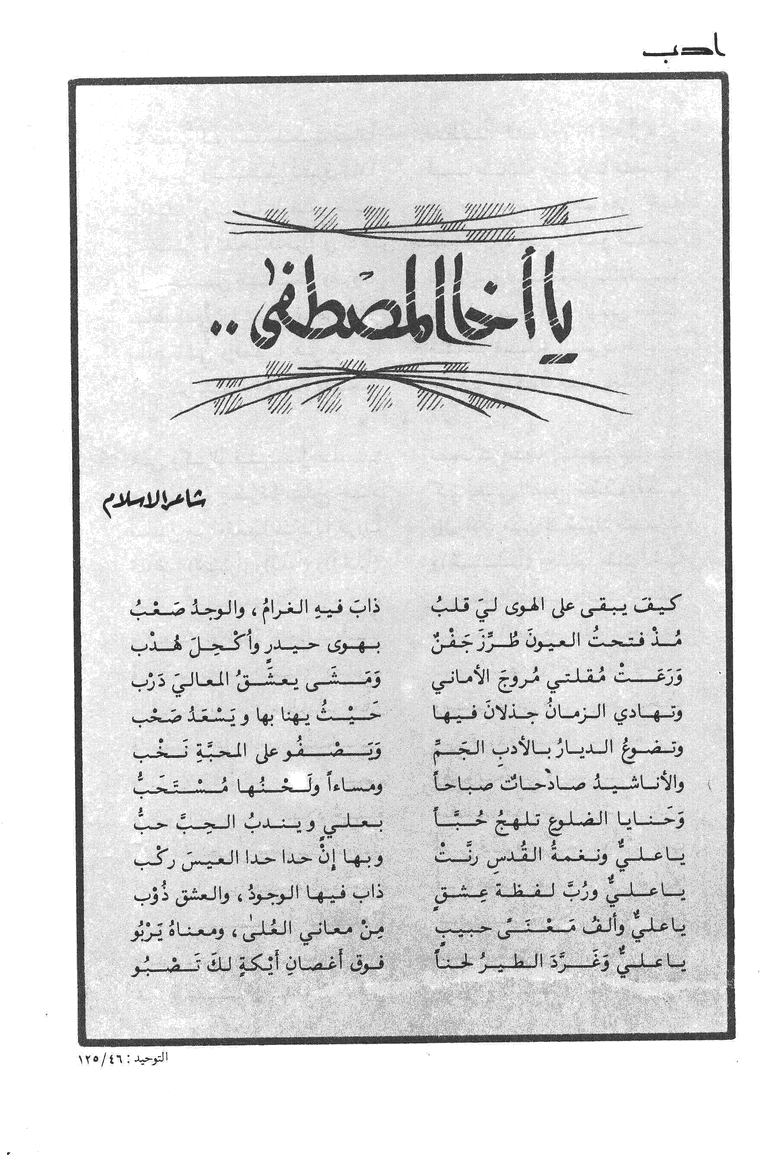 ادب
يا أخا المصطفىٰ ..
شاعر الاسلام
كيفَ يبقى على الهوى ليَ قلبُ ذابَ فيهِ الغرامُ ، والوجدُ صَعْبُ
مُذْ فتحتُ العيونَ طُرِّزَ جَفْنٌ بهوى حيدرٍ وأُكْحِلَ هُدْب
وَرَعَتْ مُقلتي مُروجَ الأماني وَمَشَى يعشَقُ المعاليَ دَرْب
وتهادي الزمانُ جذلانَ فيها حَيْثُ يهنا بها ويَسْعَدُ صَحْب
وتضوعُ الديارُ بالأدبِ الجَمِّ وَيَصْفُو على المحبَّةِ نَخْب
والأناشيدُ صادحاتٌ صباحاً ومساءاً ولَحْنُها مُسْتَحَبُّ
وَحَنايا الضلوعِ تلهجُ حُبَّاً بعليٍ ويندبُ الحِبَّ حبُّ
ياعليٌّ ونغمةُ القُدسِ رنَّتْ وبها إنْ حدا حدا العيسَ ركْب
ياعليٌّ ورُبَّ لفظة عِشقٍ ذاب فيها الوجودُ ، والعشق ذُوْب
ياعليٌّ وألفُ مَعْنَىً حبيبٍ مِنْ معاني العُلىٰ ، ومعناهُ يَرْبُو
ياعليٌّ وَغَرَّدَ الطيرُ لحناً فوق أغصانِ أيْكةٍ لكَ تَصْبُو
التوحيد : ٤٦/ ١٢٥